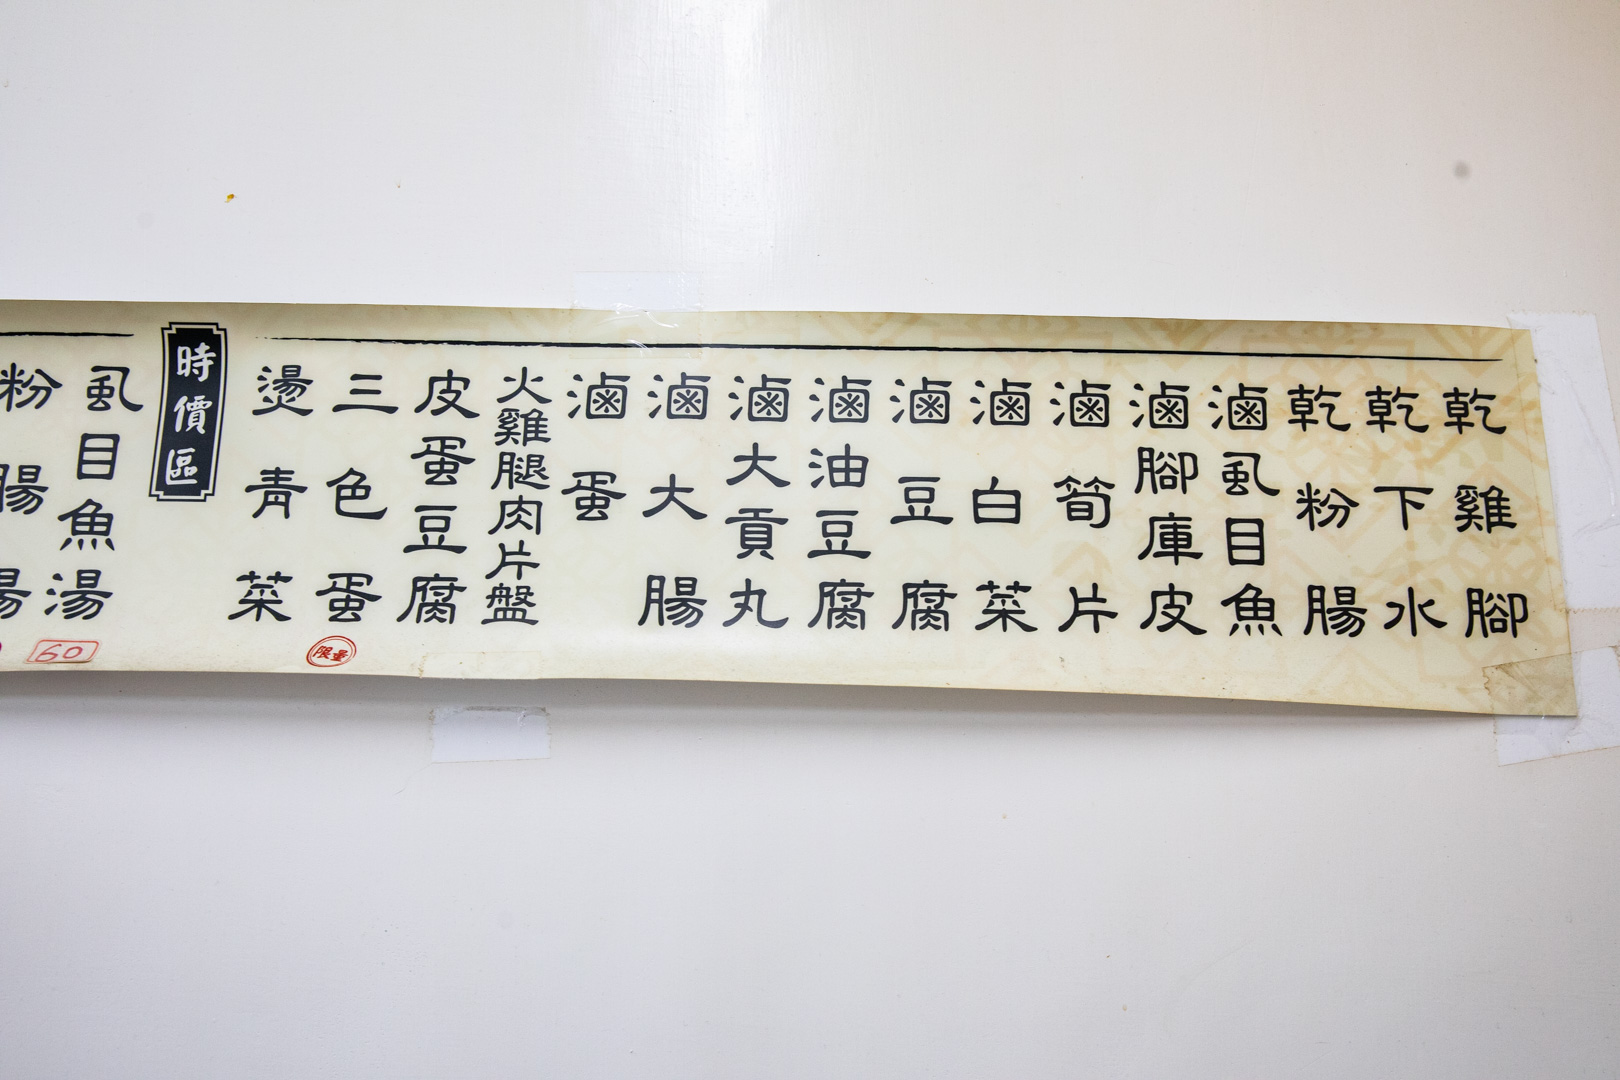 粉腸湯
虱目魚湯
60
時價區
燙青菜
三色蛋
限量
皮蛋豆腐
火雞腿肉片盤
滷蛋
滷大腸
滷大貢丸
滷油豆腐
滷豆腐
滷白菜
滷筍片
滷腳庫皮
滷虱目魚
乾粉腸
乾下水
乾雞腳